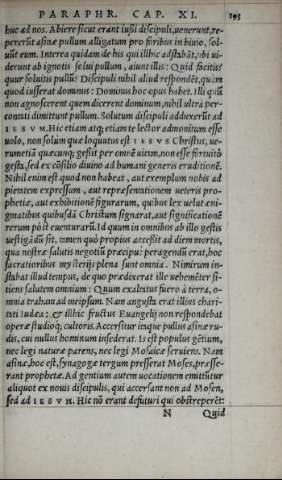 PARAPHR. CAP. XI. 193
huc ad nos. Abiere sicut erant iussi discipuli, uenerunt, re-
pererunt asinæ pullum alligatum pro foribus in biuio, sol-
uunt eum. Interea quidam de his qui illhic adstabāt, ubi ui-
derunt ab ignotis solui pullum, aiunt illis: Quid facitis?
quur soluitis pullū? Discipuli nihil aliud respondēt, quàm
quod iusserat dominus: Dominus hoc opus habet. Illi quū
non agnoscerent quem dicerent dominum, nihil ultra per-
contati dimittunt pullum. Solutum discipuli adduxerūt ad
IESVM. Hic etiam atq; etiam te lector admonitum esse
uolo, non solùm quæ loquutus est IESVS Christus, ue-
rumetiā quæcunq; gessit per omnē uitam, non esse fortuitò
gesta, sed ex cōsilio diuino ad humani generis eruditionē.
Nihil enim est quod non habeat, aut exemplum nobis ad
pietatem expressum, aut repræsentationem ueteris pro-
phetiæ, aut exhibitionē figurarum, quibus lex uelut æni-
gmatibus quibusdā Christum signarat, aut significationē
rerum pòst euenturarū. Id quum in omnibus ab illo gestis
uestigādū sit, tamen quò propius accessit ad diem mortis,
qua nostræ salutis negotiū præcipuè peragendū erat, hoc
sacratioribus mysterijs plena sunt omnia. Nimirum in-
stabat illud tempus, de quo prædixerat ille uehemēter si-
tiens salutem omnium: Quum exaltatus fuero à terra, o-
mnia traham ad meipsum. Nam angusta erat illius chari-
tati Iudæa: & illhic fructus Euangelij non respondebat
operæ studioq; cultoris. Accersitur itaque pullus asinæ ru-
dis, cui nullus hominum insederat. Is est populus gētium,
nec legi naturæ parens, nec legi Mosaicæ seruiens. Nam
asinæ, hoc est, synagogæ tergum presserat Moses, presse-
rant prophetæ. Ad gentium autem uocationem emittūtur
aliquot ex nouis discipulis, qui accersant non ad Mosen,
sed ad IESVM. Hic nō erant defuturi qui obstreperēt:
N Quid